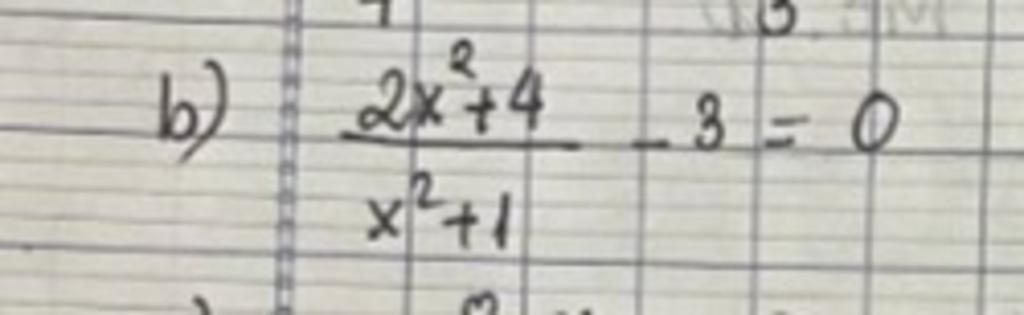 b) (2x²+4)/(x²+1) - 3 = 0